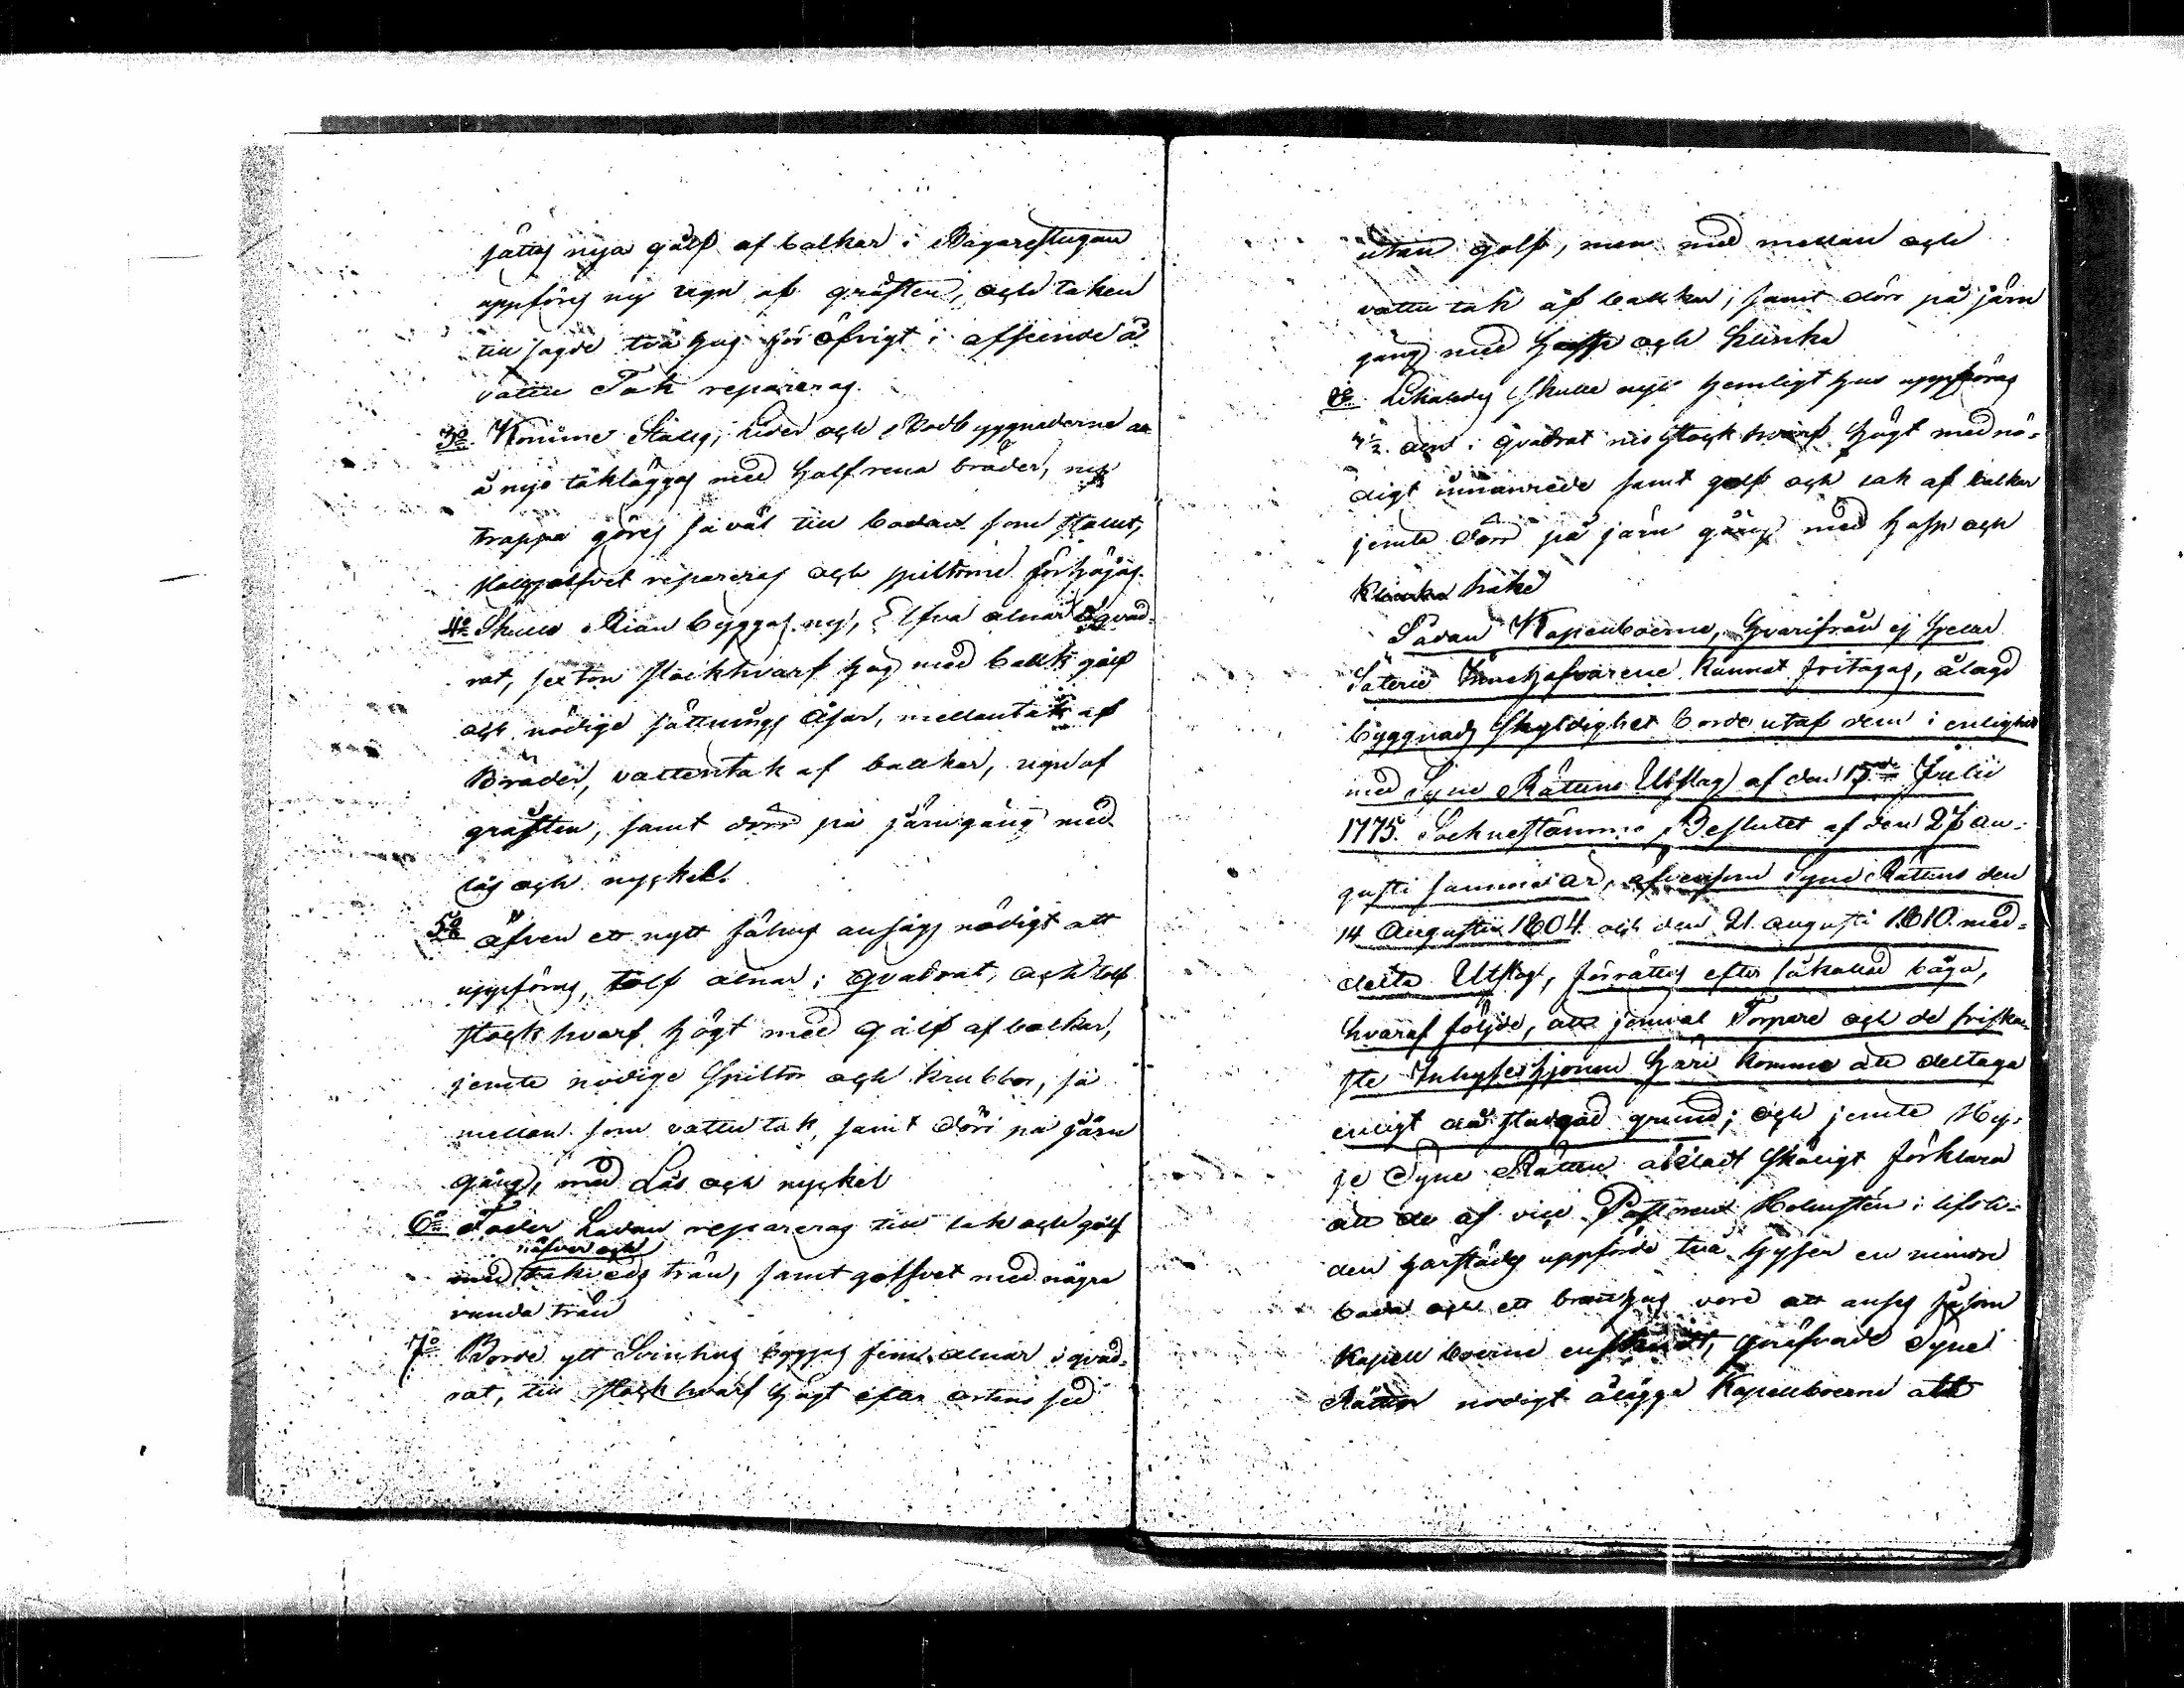 sättes nya gålf af balkar i Bagarestugan
uppföres ny ugn af gråsten, och taken
till sagde två hus för öfrigt i afseende å
vatten Tak repareras.
3o Komme Stalls, Lider och Bodbyggnaderne
å nyo takläggas med halfrena bräder, ny
trappa göres så väl till bodan som stallet,
stallgolfvet repareras och spiltorne förhöjas.
4o Skulle Rian byggas ny, Elfva alnar i qvad-
rat, sexton stockhvarf hög med balk gålf
och nödige sättnings Åsar, mellantak af
Bräder, vattentak af balkar, ugn af
gråsten, samt dörr på järngång med
lås och nyckel.
5o Äfven ett nytt fähus ansågs nödigt att
uppföras, tolf alnar i qvadrat, och tolf
stockhvarf högt med gålf af balkar,
jemte nödige Spiltor och krubbor, så
mellan som vattu tak, samt dörr på järn
gång, med Lås och nyckel
6o Foder Ladan repareras till tak och gålf
näfver och
med takveds trän, samt golfvet med några
runda trän
7o Borde ett Svinhus byggas fem alnar i qvad-
rat, tio stockhvarf högt efter ortens sed
utan golf, men med mellan och
vattu tak af balkar, samt dörr på järn
gång med hasp och klinka
8o Likaledes skulle nytt hemligt hus uppföras
4 1/2 aln i qvadrat nio stock hvarf högt med nö-
digt innanrede samt golf och tak af balkar
jemte dörr på järn gång med hasp och
klinka hake
Sådan Kapellboerne, hvarifrån ej heller
Säterie Innehafvarene kunnat fritagas, ålagd
byggnads skyldighet borde utaf dem i enlighet
med Syne Rättens Utslag af den 15de Julii
1775. Sockne stämmo Beslutet af den 27 au-
gusti samma år, äfvensom Syne Rättens den
14 Augustii 1804 och den 21 augusti 1810 med-
delta Utslag, förrättas efter såkallad båga,
hvaraf följde, att jemväl Torpare och de friska-
ste Inhyses hjonen häri komme att deltaga
enligt då stadgad grund; och jemte Hy-
je Syne Rätten aktadt skäligt förklara
att de af vice Pastoren Holmstén i lifsti-
den härstädes uppförde två hyser en mindre
bod och ett brunhus vore att anses såsom
Kapell boerne enskendt, pröfvade Syne
Rätten nödigt ålägga Kapellboerne att